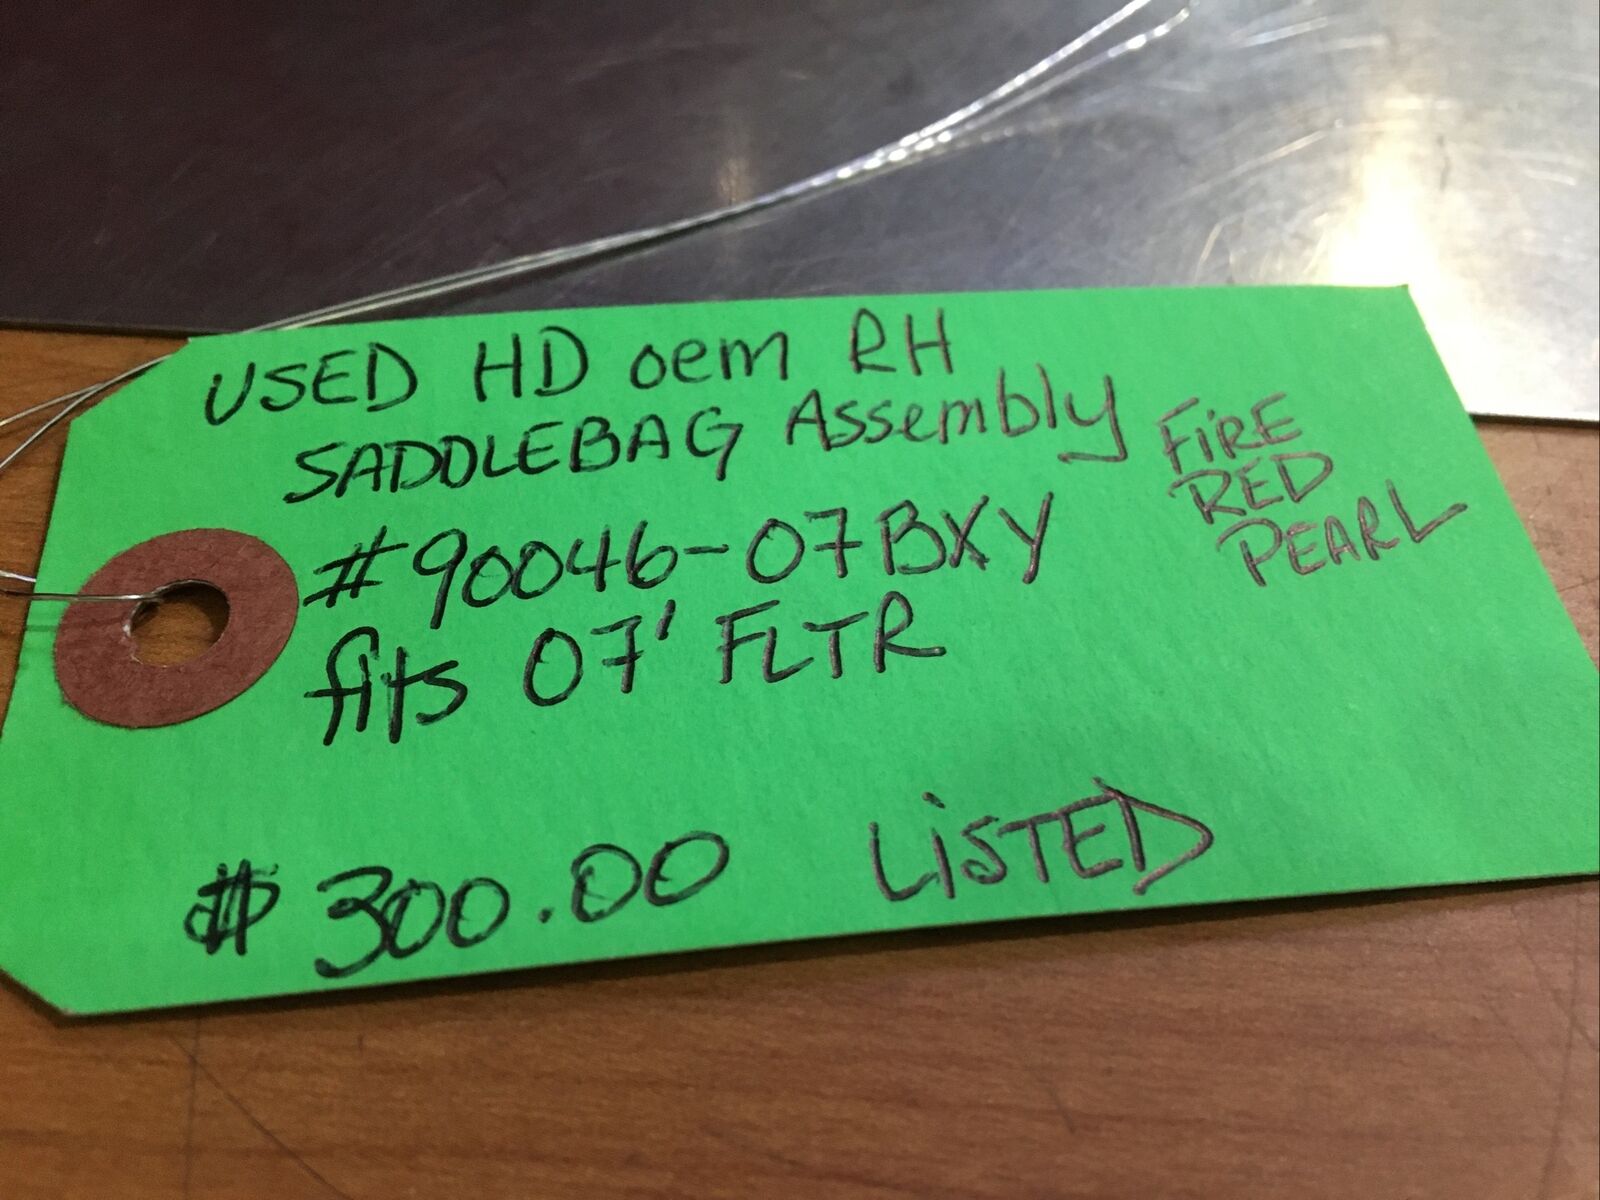 USED HD oem RH
SADDLEBAG Assembly
FiRE
RED
PEARL
#90046-07BXY
fits 07' FLTR
$300.00 LiSTED